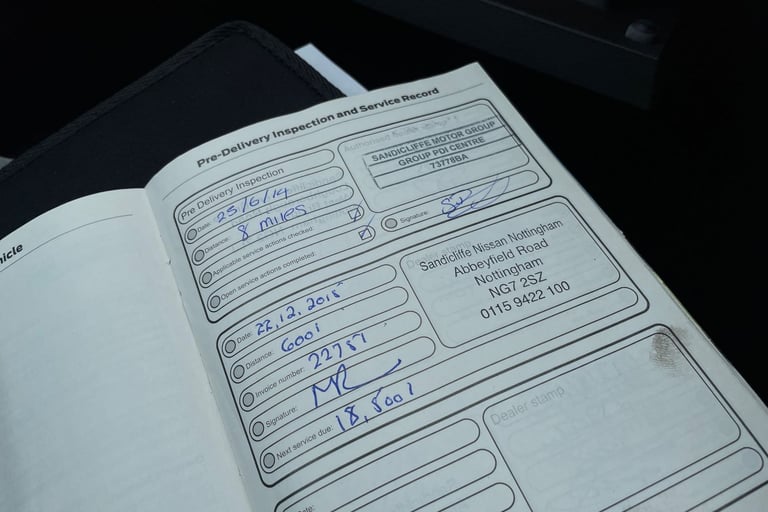 hicle
Pre-Delivery Inspection and Service Record
Pre Delivery Inspection
Date: 25/6/14
Distance: 8 miles
Applicable service actions checked:
Open service actions completed:
SANDICLIFFE MOTOR GROUP
GROUP PDI CENTRE
73778BA
Signature:
Date: 22.12.2015
Distance: 6001
Invoice number: 22757
Signature:
Next service due: 18,5001
Sandicliffe Nissan Nottingham
Abbeyfield Road
Nottingham
NG7 2SZ
0115 9422 100
Date:
Dealer stamp